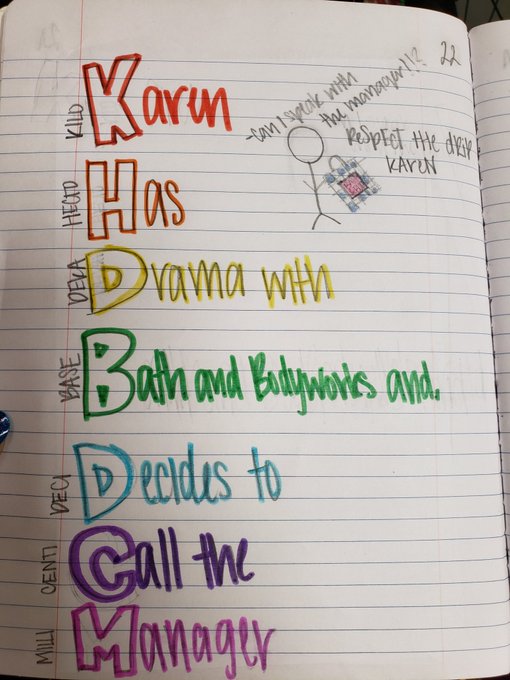 22
-can I speak with
the manager!!?
RESPECT the drip
KAREN
KILO
Karen
HECTO
Has
DEKA
Drama with
BASE
Bath and Bodyworks and.
DECI
Decides to
CENTI
Call the
MILLI
Manager